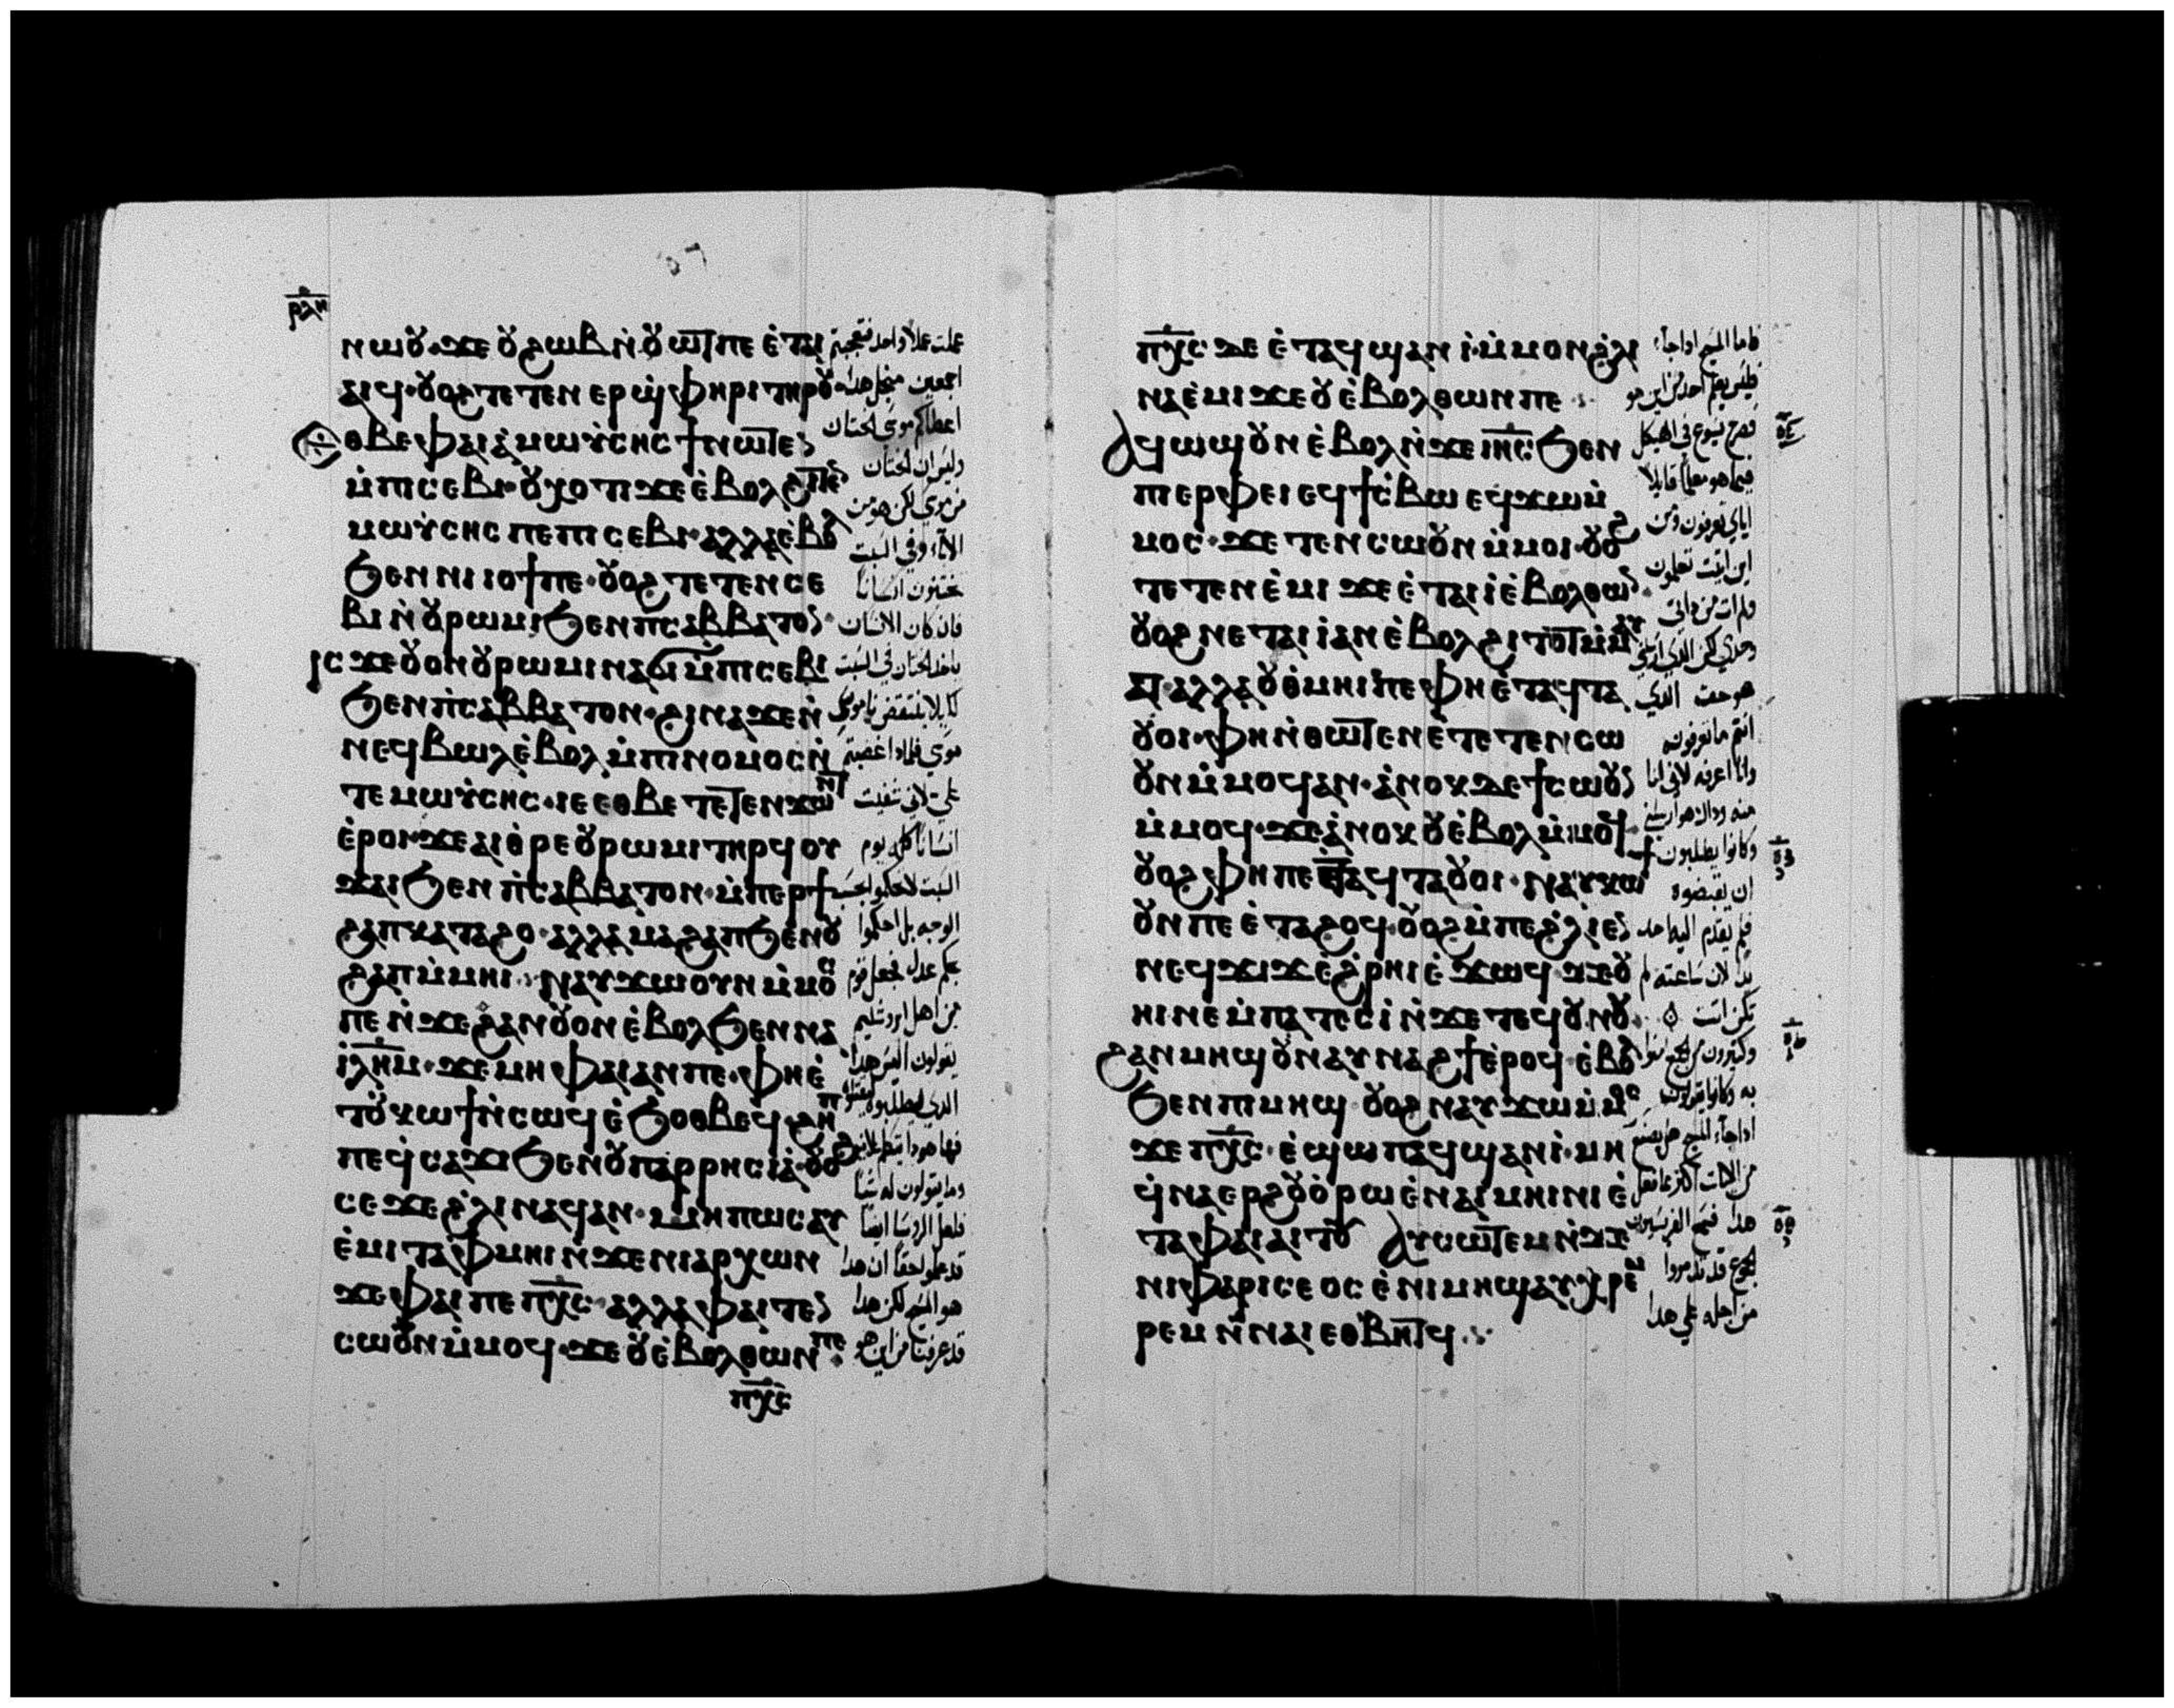 ⲣⲗⲏ
ⲛⲱⲟⲩ·ϫⲉ ⲟⲩϩⲱⲃ ⲛ̀ⲟⲩⲱⲧ ⲡⲉ ⲉ̀ⲧⲁⲓ
ⲁⲓϥ·ⲟⲩⲟϩ ⲧⲉⲧⲉⲛ ⲉⲣϣ̀ⲫⲏⲣⲓ ⲧⲏⲣⲟⲩ·
ⲉⲑⲃⲉ ⲫⲁⲓ ⲁ̀ ⲙⲱⲩ̀ⲥⲏⲥ ϯ ⲛⲱⲧⲉⲛ
ⲙ̀ⲡⲓⲥⲉⲃⲓ·ⲟⲩⲭⲟⲧⲓ ϫⲉ ⲉ̀ⲃⲟⲗϩⲓⲧⲉⲛ
ⲙⲱⲩ̀ⲥⲏⲥ ⲡⲉ ⲡⲓⲥⲉⲃⲓ·ⲁⲗⲗⲁ ⲉ̀ⲃⲟⲗ
ϧⲉⲛ ⲛⲓⲓⲟϯ ⲡⲉ·ⲟⲩⲟϩ ⲧⲉⲧⲉⲛⲥⲉ
ⲃⲓ ⲛ̀ⲟⲩⲣⲱⲙⲓ ϧⲉⲛ ⲡⲥⲁⲃⲃⲁⲧⲟⲛ·
ⲓⲥϫⲉ ⲟⲩⲟⲛ ⲟⲩⲣⲱⲙⲓ ⲛⲁϭⲓ ⲙ̀ⲡⲓⲥⲉⲃⲓ
ϧⲉⲛ ⲡ̀ⲥⲁⲃⲃⲁⲧⲟⲛ·ϩⲓⲛⲁ ϫⲉⲛ̀
ⲛⲉϥⲃⲱⲗ ⲉ̀ⲃⲟⲗ ⲙ̀ⲡⲓⲛⲟⲙⲟⲥ ⲛ̀
ⲧⲉ ⲙⲱⲩ̀ⲥⲏⲥ·ⲓⲉ ⲉⲑⲃⲉ ⲧⲉⲧⲉⲛϫⲱⲛⲧ
ⲉ̀ⲣⲟⲓ·ϫⲉ ⲁⲓⲑⲣⲉ ⲟⲩⲣⲱⲙⲓ ⲧⲏⲣϥ ⲟⲩ
ϫⲁⲓ ϧⲉⲛ ⲡ̀ⲥⲁⲃⲃⲁⲧⲟⲛ·ⲙ̀ⲡⲉⲣϯ
ϩⲁⲡ ⲕⲁⲧⲁ ϩⲟ·ⲁⲗⲗⲁ ⲙⲁϩⲁⲡ ϧⲉⲛ ⲟⲩ
ϩⲁⲡ ⲙ̀ⲙⲏⲓ·ⲛⲁⲩϫⲱ ⲟⲩⲛ ⲙ̀ⲙⲟⲥ
ⲡⲉ ⲛ̀ϫⲉ ϩⲁⲛⲟⲩⲟⲛ ⲉ̀ⲃⲟⲗ ϧⲉⲛ ⲛⲁ
ⲓ̀ⲗⲏⲙ·ϫⲉ ⲙⲏ ⲫⲁⲓ ⲁⲛ ⲡⲉ·ⲫⲏ ⲉ̀
ⲧⲟⲩⲕⲱϯ ⲛ̀ⲥⲱϥ ⲉ̀ϧⲟⲑⲃⲉϥ·ϩⲏⲡ
ⲡⲉ ϥ̀ⲥⲁϫⲓ ϧⲉⲛ ⲟⲩⲡⲁⲣⲣⲏⲥⲓⲁ̀·ⲟⲩⲟϩ
ⲥⲉϫⲉ ϩ̀ⲗⲓ ⲛⲁϥ ⲁⲛ·ⲙⲏⲡⲱⲥ ⲁⲩ
ⲉ̀ⲙⲓ ⲧⲁⲫⲙⲏⲓ ⲛ̀ϫⲉ ⲛⲓⲁⲣⲭⲱⲛ
ϫⲉ ⲫⲁⲓ ⲡⲉ ⲡⲭ̅ⲥ̅·ⲁⲗⲗⲁ ⲫⲁⲓ ⲧⲉⲛ
ⲥⲱⲟⲩⲛ ⲙ̀ⲙⲟϥ·ϫⲉ ⲟⲩ ⲉ̀ⲃⲟⲗ ⲑⲱⲛ ⲡⲉ
ⲡⲭ̅ⲥ̅
عملت عملا واحد فتعجبتم
اجمعين منجل هدا
اعطاكم موسى الختان
وليس ان الختان
من موسى لكن هو من
الاباء وفي السبت
تختنون انسانا
فان كان الانسان
ياخذ الختان في السبت
لكيلا ينتقض ناموس
موسى فلماذا غضبتم
على لاني شفيت
انسانا كله يوم
السبت لا تحكموا بحسب
الوجه بل احكموا
بحكم عدل فجعل قوم
من اهل اورشليم
يقولون اليس هدا
الدي يطلبوه ليقتلوه
فها هودا يتكلم علانيه
وما يقولون له شيا
فلعل الروسا ايضا
قد علموا حقا ان هدا
هو المسيح لكن هدا
قد عرفنا من اين هو
ⲡⲭ̅ⲥ̅ ⲇⲉ ⲉ̀ⲧⲁϥϣⲁⲛ ⲓ̀·ⲙ̀ⲙⲟⲛ ϩ̀ⲗⲓ
ⲛⲁⲉ̀ⲙⲓ ϫⲉ ⲟⲩ ⲉ̀ⲃⲟⲗ ⲑⲱⲛ ⲡⲉ
ⲁϥⲱϣ ⲟⲩⲛ ⲉ̀ⲃⲟⲗ ⲛ̀ϫⲉ ⲓⲏ̅ⲥ̅ ϧⲉⲛ
ⲡⲓⲉⲣⲫⲉⲓ ⲉϥϯⲥ̀ⲃⲱ ⲉϥϫⲱ ⲙ̀
ⲙⲟⲥ·ϫⲉ ⲧⲉⲛⲥⲱⲟⲩⲛ ⲙ̀ⲙⲟⲓ·ⲟⲩⲟϩ
ⲧⲉⲧⲉⲛ ⲉ̀ⲙⲓ ϫⲉ ⲉ̀ⲧⲁⲓⲓ̀ ⲉ̀ⲃⲟⲗ ⲑⲱⲛ·
ⲟⲩⲟϩ ⲛⲉⲧⲁⲓⲓ̀ ⲁⲛ ⲉ̀ⲃⲟⲗϩⲓⲧⲟⲧ ⲙ̀ⲙⲁⲩ
ⲁⲧ·ⲁⲗⲗⲁ ⲟⲩⲑ̀ⲙⲏⲓ ⲡⲉ ⲫⲏ ⲉ̀ⲧⲁϥⲧⲁ
ⲟⲩⲟⲓ·ⲫⲏ ⲛ̀ⲑⲱⲧⲉⲛ ⲉ̀ⲧⲉⲧⲉⲛⲥⲱ
ⲟⲩⲛ ⲙ̀ⲙⲟϥ ⲁⲛ·ⲁ̀ⲛⲟⲕ ⲇⲉ ϯⲥⲱⲟⲩⲛ
ⲙ̀ⲙⲟϥ·ϫⲉ ⲁ̀ⲛⲟⲕ ⲟⲩ ⲉ̀ⲃⲟⲗ ⲙ̀ⲙⲟϥ·
ⲟⲩⲟϩ ⲫⲏ ⲡⲉ ⲉⲧⲁϥⲧⲁⲟⲩⲟⲓ·ⲛⲁⲩⲕⲱϯ
ⲟⲩⲛ ⲡⲉ ⲉ̀ⲧⲁϩⲟϥ·ⲟⲩⲟϩ ⲙ̀ⲡⲉ ϩ̀ⲗⲓ ⲉⲛ
ⲛⲉϥϫⲓϫ ⲉ̀ϩ̀ⲣⲏⲓ ⲉ̀ϫⲱϥ·ϫⲉ ⲟⲩ
ⲏⲓ ⲛⲉ ⲙ̀ⲡⲁⲧⲉⲥⲓ̀ ⲛ̀ϫⲉ ⲧⲉϥⲟⲩⲛⲟⲩ
ϩⲁⲛⲙⲏϣ ⲟⲩⲛ ⲁⲩⲛⲁϩϯ ⲉ̀ⲣⲟϥ·ⲉ̀ⲃⲟⲗ
ϧⲉⲛ ⲡⲓⲙⲏϣ·ⲟⲩⲟϩ ⲛⲁⲩϫⲱ ⲙ̀ⲙⲟⲥ
ϫⲉ ⲡⲭ̅ⲥ̅·ⲉ̀ϣⲱⲡ ⲁϥϣⲁⲛⲓ̀·ⲙⲏ
ϥ̀ⲛⲁⲉⲣ ϩⲟⲩⲟ̀ ⲣⲱ ⲉ̀ⲛⲁⲓⲙⲏⲓⲛⲓ ⲉ̀
ⲧⲁ ⲫⲁⲓ ⲁⲓⲧⲟⲩ ⲁⲩⲥⲱⲧⲉⲙ ⲛ̀ϫⲉ
ⲛⲓⲫⲁⲣⲓⲥⲉⲟⲥ ⲉ̀ⲛⲓⲙⲏϣ ⲁⲩⲭⲣⲉⲙ
ⲣⲉⲙ ⲛ̀ⲛⲁⲓ ⲉⲑⲃⲏⲧϥ
فاما المسيح اذا جاء
فليس يعلم احد من اين هو
فصرخ يسوع في الهيكل
فيما هو معلما قايلا
اياي تعرفون ومن
اين اتيت تعلمون
ولم ات من داتي
وحدي لكن الدي ارسلني
هو حق الدي
انتم ما تعرفونه
وانا اعرفه لاني انا
منه وداك هو ارسلني
وكانوا يطلبون
ان يقبضوه
فلم يقدم اليه احد
يدا لان ساعته لم
تكن اتت
وكثيرون من الجمع امنوا
به وكانوا يقولون
ادا جاء المسيح هل يصنع
من الايات اكثر مما فعل
هدا فسمع الفريسيون
الجموع قد تدمروا
من اجله على هدا